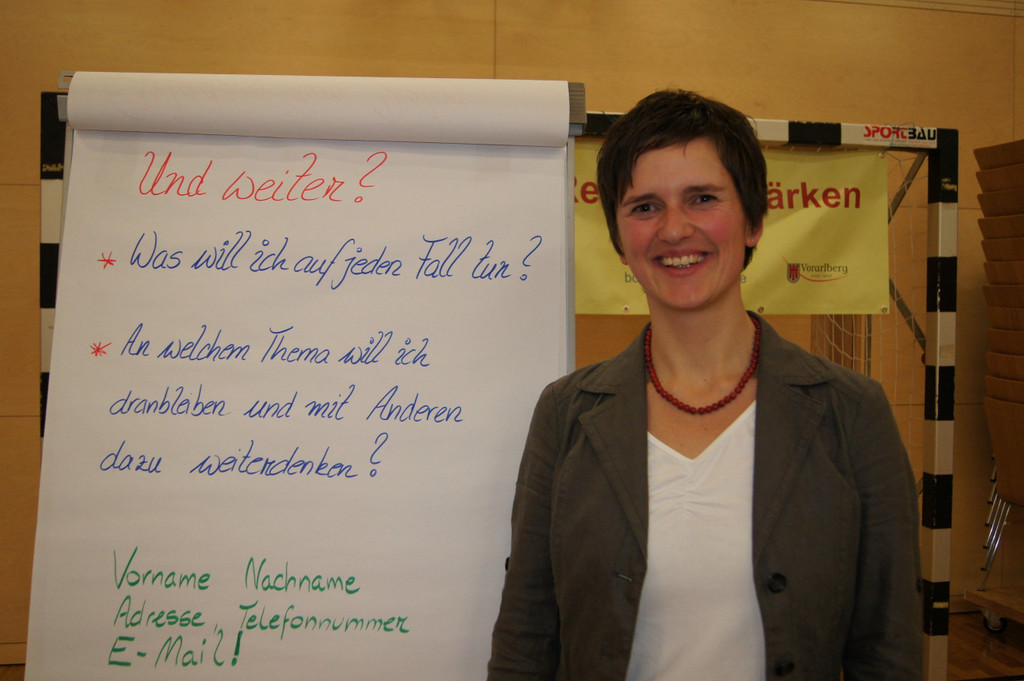 Und weiter?
* Was will ich auf jeden Fall tun?
* An welchem Thema will ich
dranbleiben und mit Anderen
dazu weiterdenken?
Vorname Nachname
Adresse, Telefonnummer
E-Mail!
SPORTBAU
ärken
Vorarlberg